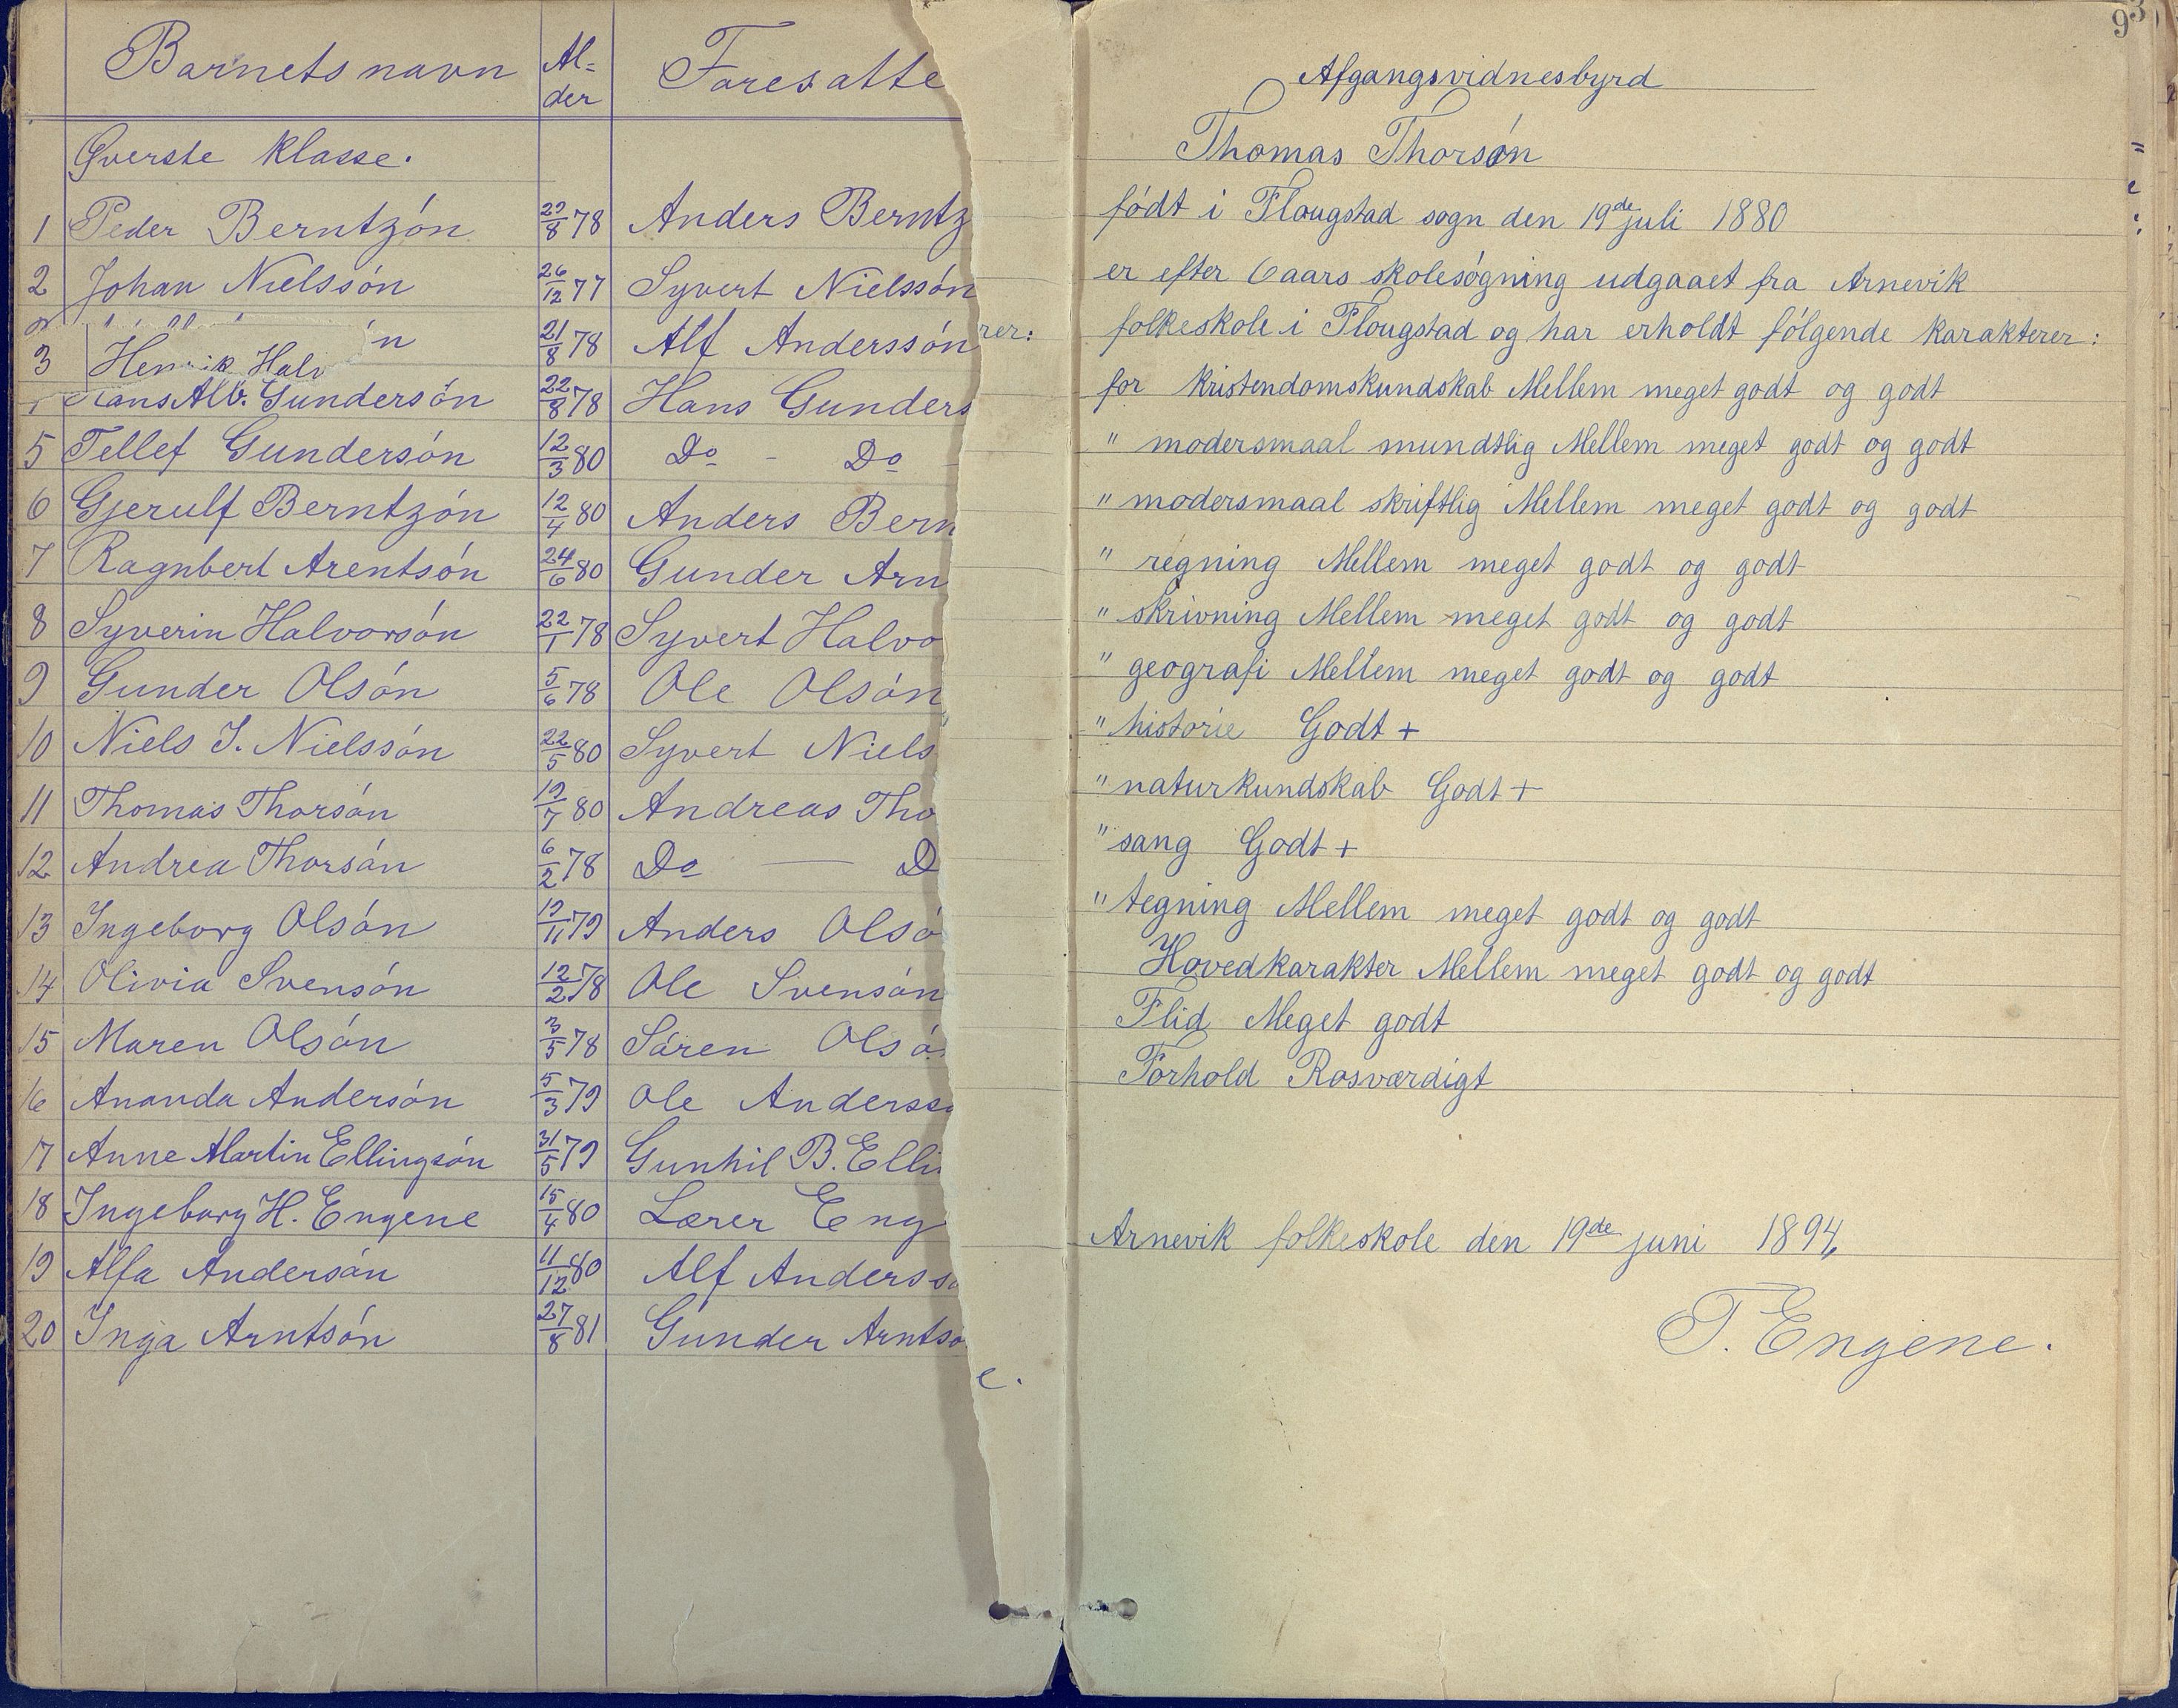 Barnets navn Al-der Foresatte
Øverste klasse.
1 Peder Berntzón 29/8 78 Anders Berntz
2 Johan Nielssón 26/12 77 Syvert Nielssón
3 Henrik Halv n 21/8 78 Alf Anderssón
Hans Alb. Gundersón 22/8 78 Hans Gunders
5 Tellef Gundersón 12/3 80 Do - Do -
6 Gjerulf Berntzón 12/4 80 Anders Bern
7 Ragnbert Arentsón 24/6 80 Gunder Arn
8 Syverin Halvorsón 22/1 78 Syvert Halvo
9 Gunder Olsón 5/6 78 Ole Olsón
10 Niels S. Nielssón 22/5 80 Syvert Niels
11 Thomas Thorsón 19/7 80 Andreas Tho
12 Andrea Thorsón 6/2 78 Do — D
13 Ingeborg Olsón 19/11 79 Anders Olsó
14 Olivia Svensón 12/2 78 Ole Svensón
15 Maren Olsón 3/5 78 Sóren Olsó
16 Ananda Andersón 5/3 79 Ole Anderssó
17 Anne Martin Ellingsón 31/5 79 Gunhil B. Elli
18 Ingeborg H. Engene 15/4 80 Lærer Eng
19 Alfa Andersón 11/12 80 Alf Anderssó
20 Inga Arntsón 27/8 81 Gunder Arntsó
rer:
e.
93
Afgangsvidnesbyrd
Thomas Thorsón
födt i Flougstad sogn den 19de juli 1880
er efter 6 aars skolesógning udgaaet fra Arnevik
folkeskole i Flougstad og har erholdt fólgende karakterer:
for kristendomskundskab Mellem meget godt og godt
" modersmaal mundtlig Mellem meget godt og godt
" modersmaal skriftlig Mellem meget godt og godt
" regning Mellem meget godt og godt
" skrivning Mellem meget godt og godt
" geografi Mellem meget godt og godt
" historie Godt +
" naturkundskab Godt +
" sang Godt +
" tegning Mellem meget godt og godt
Hovedkarakter Mellem meget godt og godt
Flid Meget godt
Forhold Rosværdigt
Arnevik folkeskole den 19de juni 1894.
T. Engene.